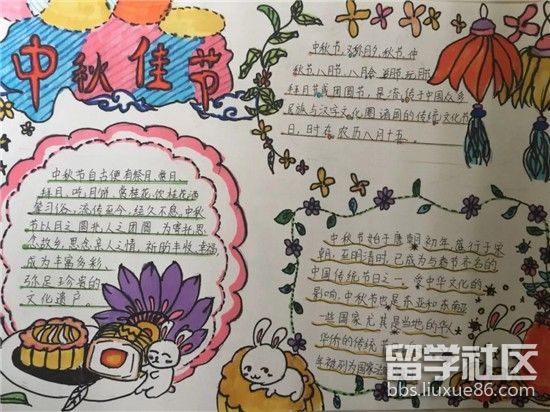 中秋佳节
中秋节,又称月夕、秋节、仲
秋节、八月节、八月会、追月节、玩月节、
拜月节或团圆节,是流传于中国众多
民族与汉字文化圈诸国的传统文化节
日,时在农历八月十五。
中秋节自古便有祭月、赏月、
拜月、吃月饼、赏桂花、饮桂花酒
等习俗,流传至今,经久不息。中秋
节以月之圆兆人之团圆,为寄托思
念故乡,思念亲人之情,祈盼丰收、幸福,
成为丰富多彩、
弥足珍贵的
文化遗产。
中秋节始于唐朝初年,盛行于宋
朝,至明清时,已成为与春节齐名的
中国传统节日之一。受中华文化的
影响,中秋节也是东亚和东南亚
一些国家尤其是当地的华人
华侨的传统节
年被列为国家法
留学社区
bbs.liuxue86.com